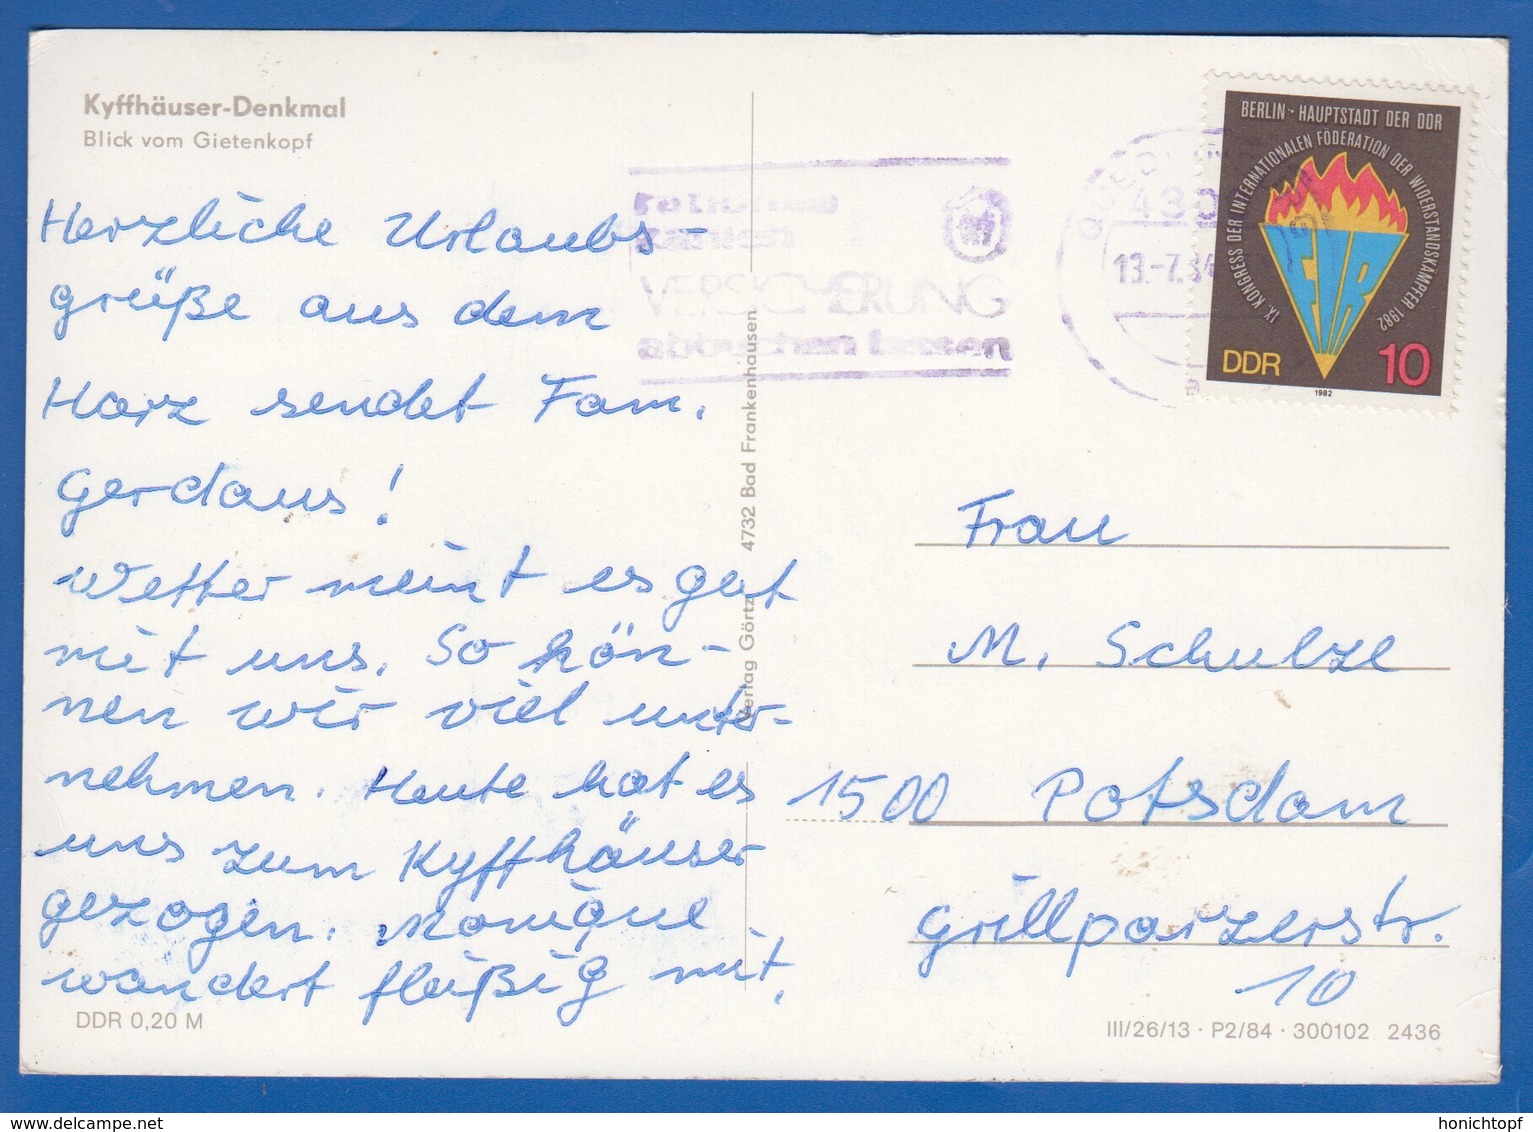 Kyffhäuser-Denkmal
Blick vom Gietenkopf
Herzliche Urlaubs-
grüße aus dem
Harz sendet Fam.
Gerdaus!
Wetter meint es gut
mit uns. So kön-
nen wir viel unter-
nehmen. Heute hat es
uns zum Kyffhäuser
gezogen. Monique
wandert fleißig mit.
DDR 0,20 M
Verlag Görtz 4732 Bad Frankenhausen
VERSICHERUNG
abbuchen lassen
13.-7.84
BERLIN · HAUPTSTADT DER DDR
IX. KONGRESS DER INTERNATIONALEN FÖDERATION DER WIDERSTANDSKÄMPFER 1982
FIR
DDR 10
1982
Frau
M. Schulze
1500 Potsdam
Grillparzerstr.
10
III/26/13 · P2/84 · 300102 2436
delcampe.net
honichtopf